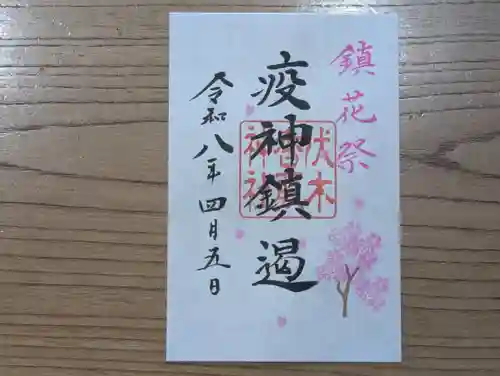 鎮花祭
疫神鎮遏
令和八年四月五日
伏木
神社